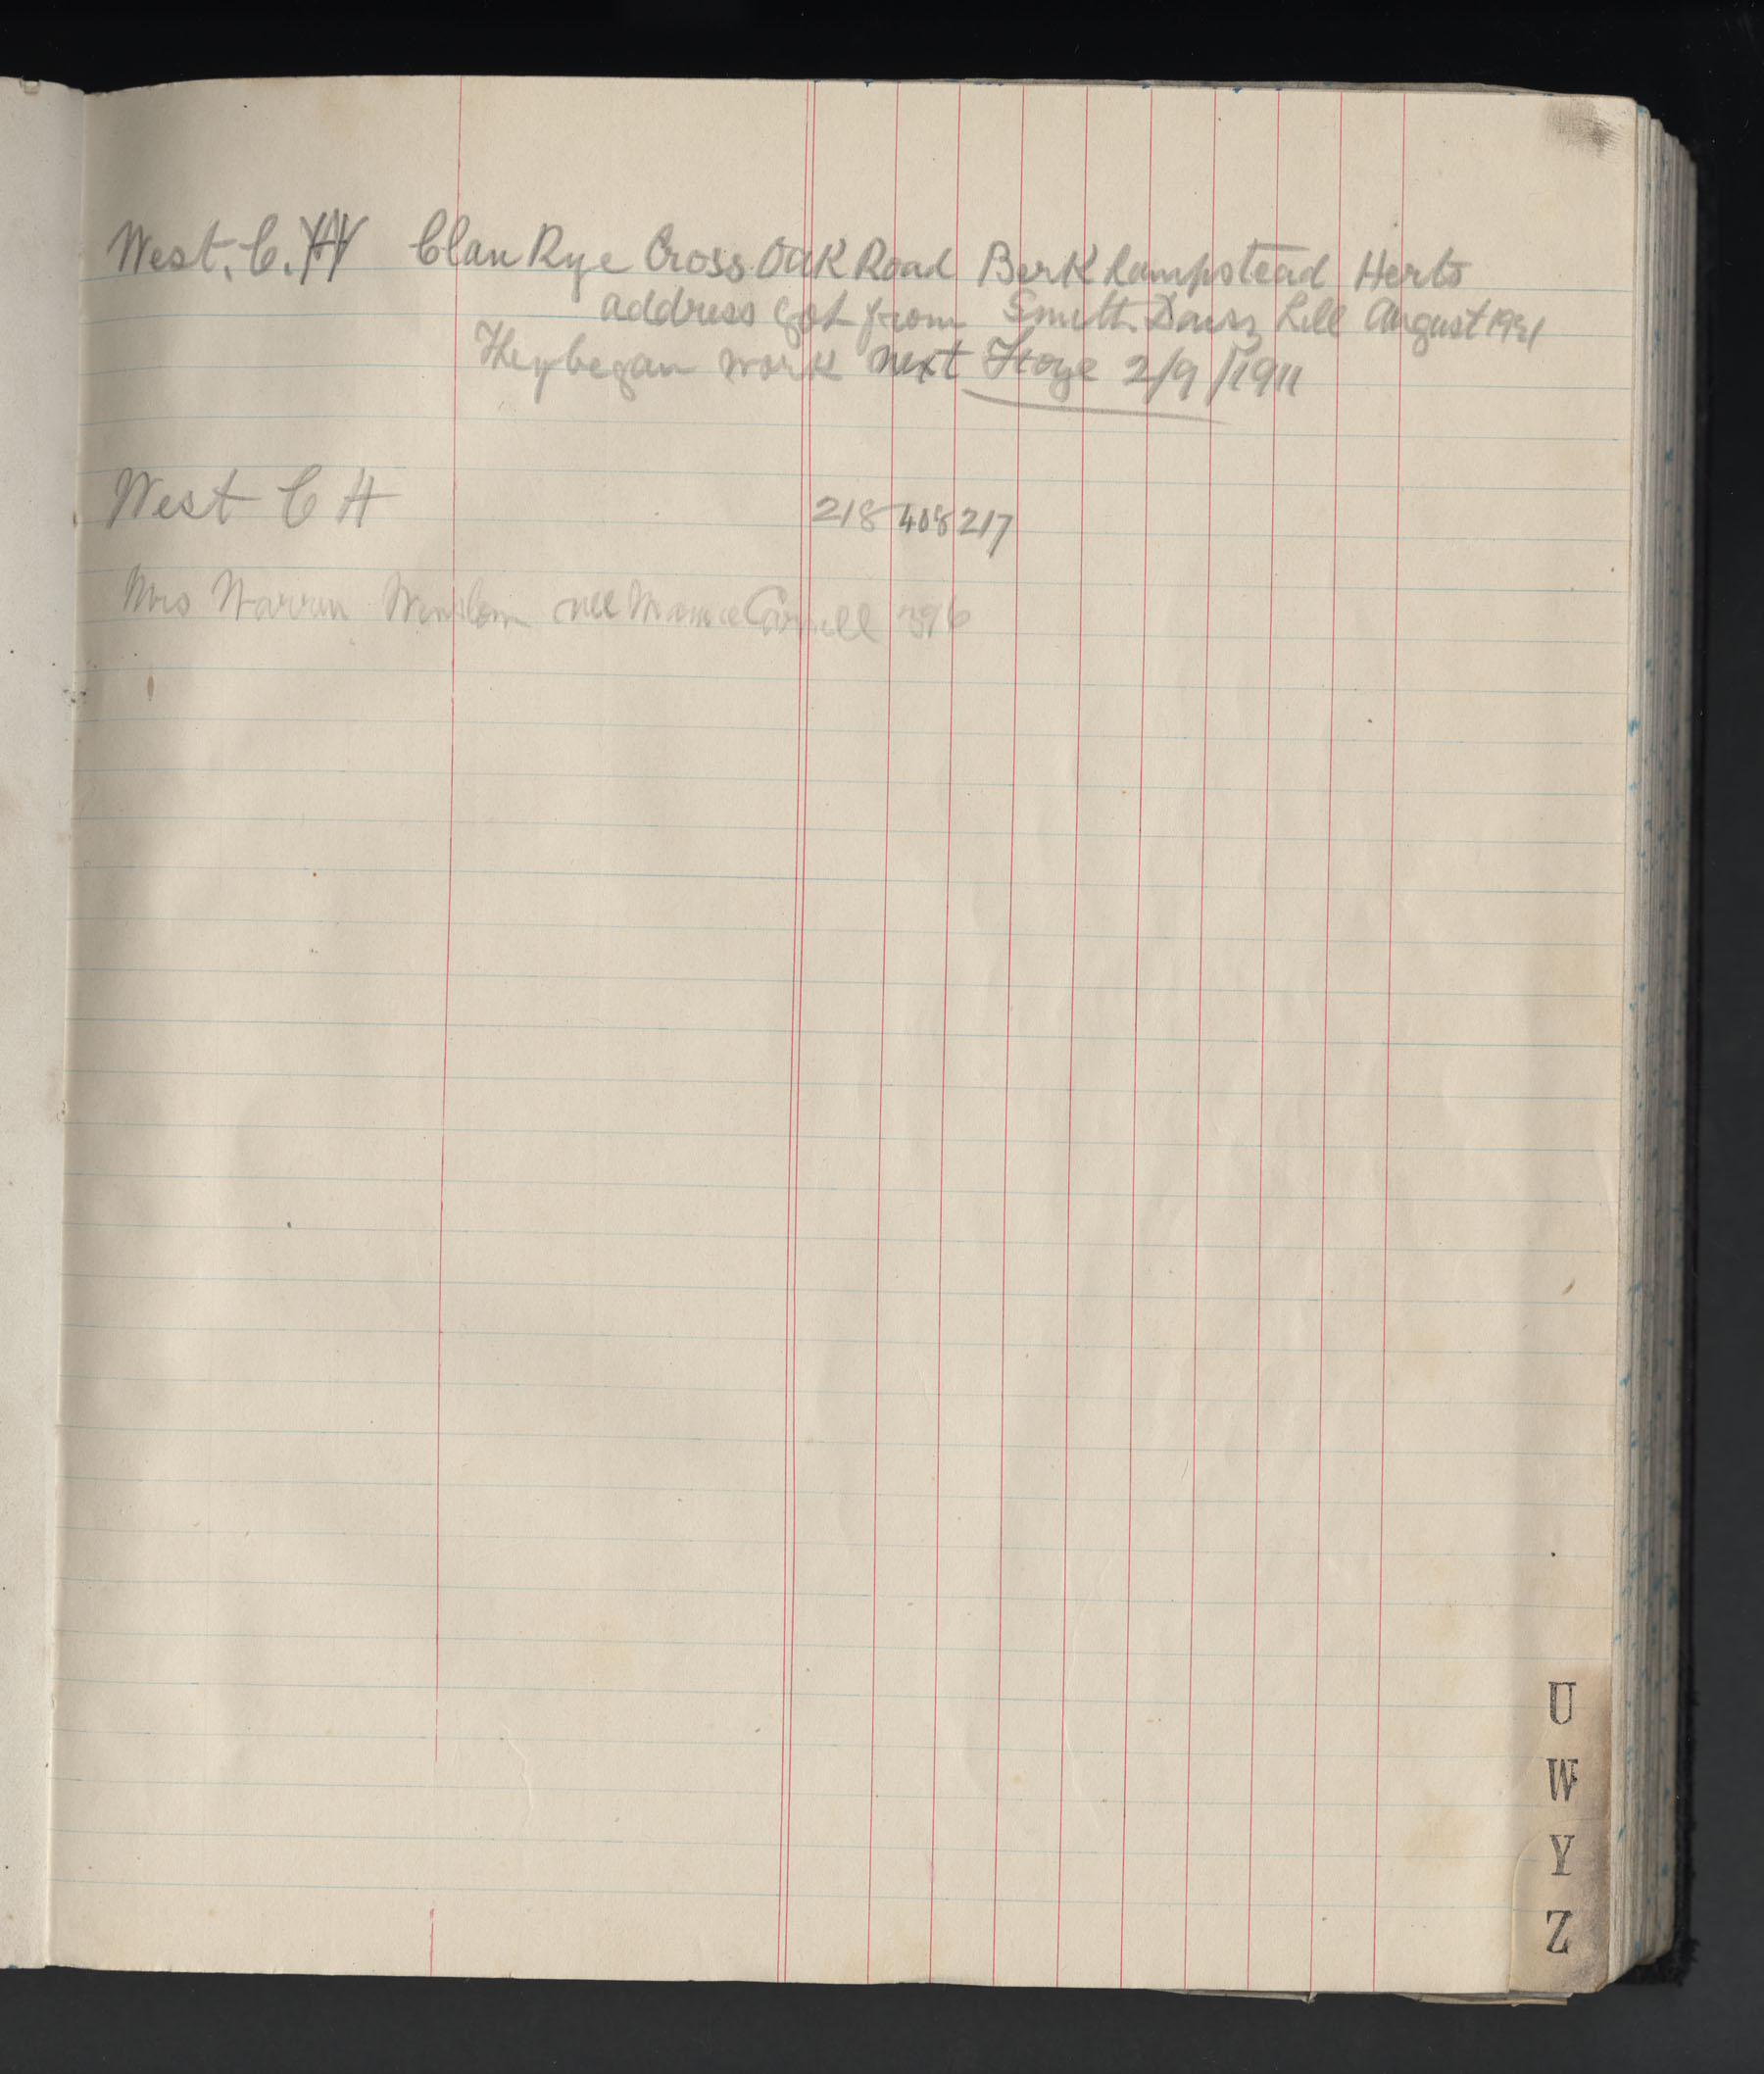 West. C. H Clan Rye Cross Oak Road Berkhampstead Herts
address got from Smith. Daisy Lill August 1921
They began work next Stage 2/9/1911
West C H 218 408 217
Mrs Warren Winslow nee Mamie Carnell 396
U
W
Y
Z